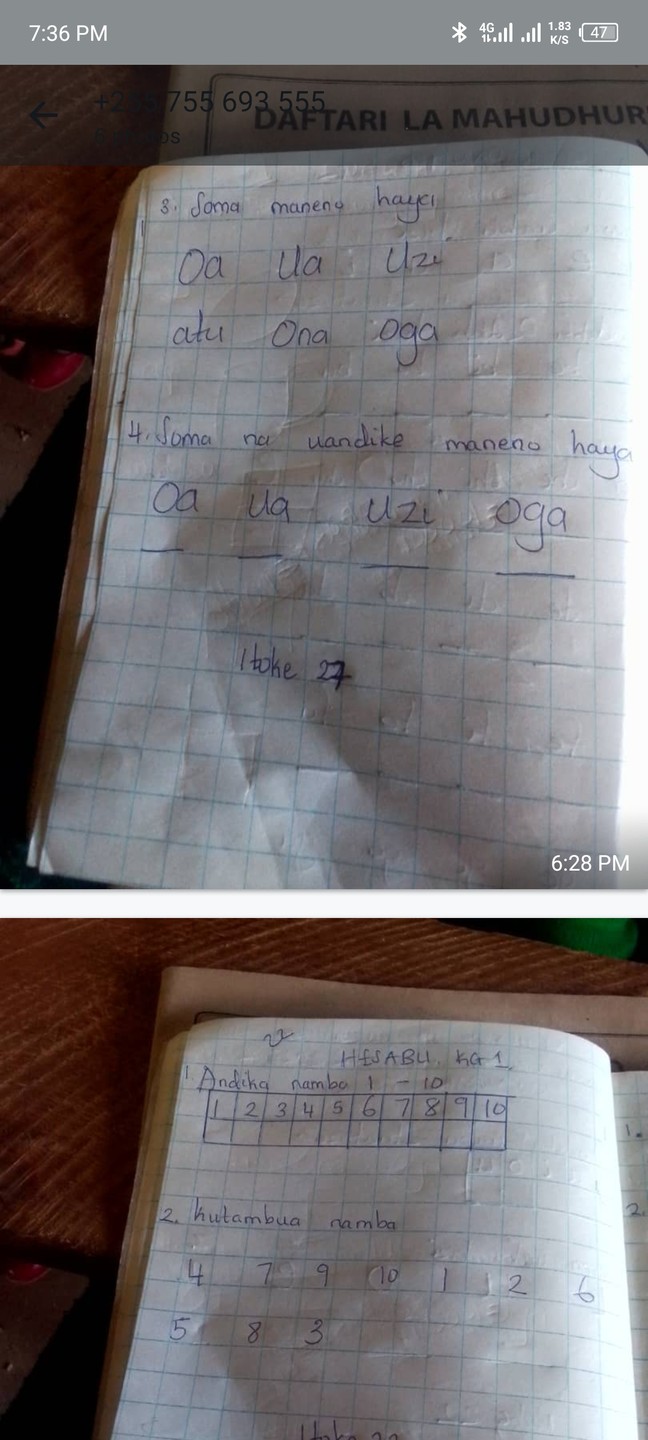 7:36 PM
4G
1.83 K/S
47
755 693 555
DAFTARI LA MAHUDHUR
3. Soma maneno haya
Oa Ua Uzi
atu Ona Oga
4. Soma na uandike maneno haya
Oa Ua Uzi Oga
Itoke 27
6:28 PM
HESABU. KG 1.
1. Andika namba 1 - 10
1 2 3 4 5 6 7 8 9 10
1.
2. Kutambua namba
2.
4 7 9 10 1 2 6
5 8 3